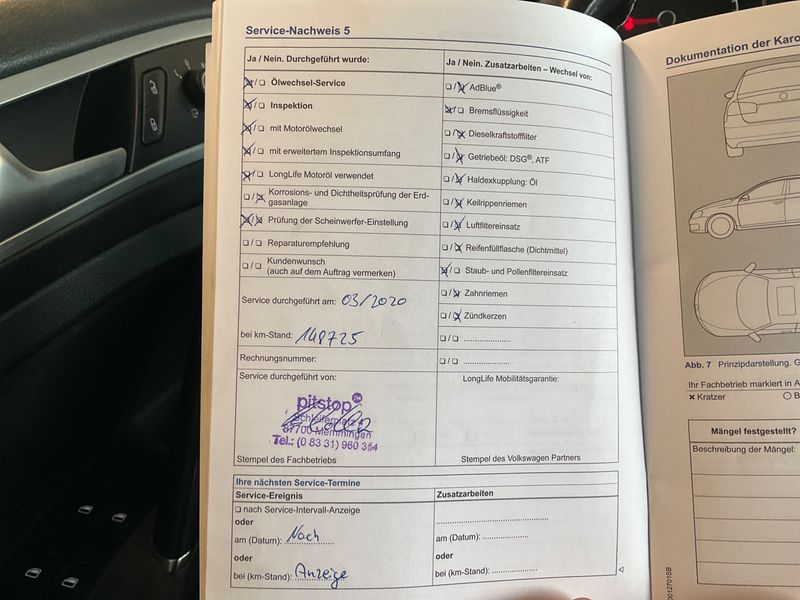 Service-Nachweis 5
Ja / Nein. Durchgeführt wurde:
☒/☐ Ölwechsel-Service
☒/☐ Inspektion
☒/☐ mit Motorölwechsel
☒/☐ mit erweitertem Inspektionsumfang
☒/☐ LongLife Motoröl verwendet
☐/☒ Korrosions- und Dichtheitsprüfung der Erd-
gasanlage
☒/☒ Prüfung der Scheinwerfer-Einstellung
☐/☐ Reparaturempfehlung
☐/☐ Kundenwunsch
(auch auf dem Auftrag vermerken)
Service durchgeführt am: 03/2020
bei km-Stand: 148725
Rechnungsnummer:
Service durchgeführt von:
pitstop
87700 Memmingen
Tel.: (0 83 31) 960 354
Stempel des Fachbetriebs
Ja / Nein. Zusatzarbeiten – Wechsel von:
☐/☒ AdBlue®
☒/☐ Bremsflüssigkeit
☐/☒ Dieselkraftstofffilter
☐/☒ Getriebeöl: DSG®, ATF
☐/☒ Haldexkupplung: Öl
☐/☒ Keilrippenriemen
☐/☒ Luftfiltereinsatz
☐/☒ Reifenfüllflasche (Dichtmittel)
☒/☐ Staub- und Pollenfiltereinsatz
☐/☒ Zahnriemen
☐/☒ Zündkerzen
☐/☐ .....................
☐/☐ .....................
LongLife Mobilitätsgarantie:
Stempel des Volkswagen Partners
Ihre nächsten Service-Termine
Service-Ereignis
☐ nach Service-Intervall-Anzeige
oder
am (Datum): Nach
oder
bei (km-Stand): Anzeige
Zusatzarbeiten
.....................
am (Datum): ................
oder
bei (km-Stand): ................
Dokumentation der Karo
Abb. 7 Prinzipdarstellung. G
Ihr Fachbetrieb markiert in A
× Kratzer ○ B
Mängel festgestellt?
Beschreibung der Mängel: